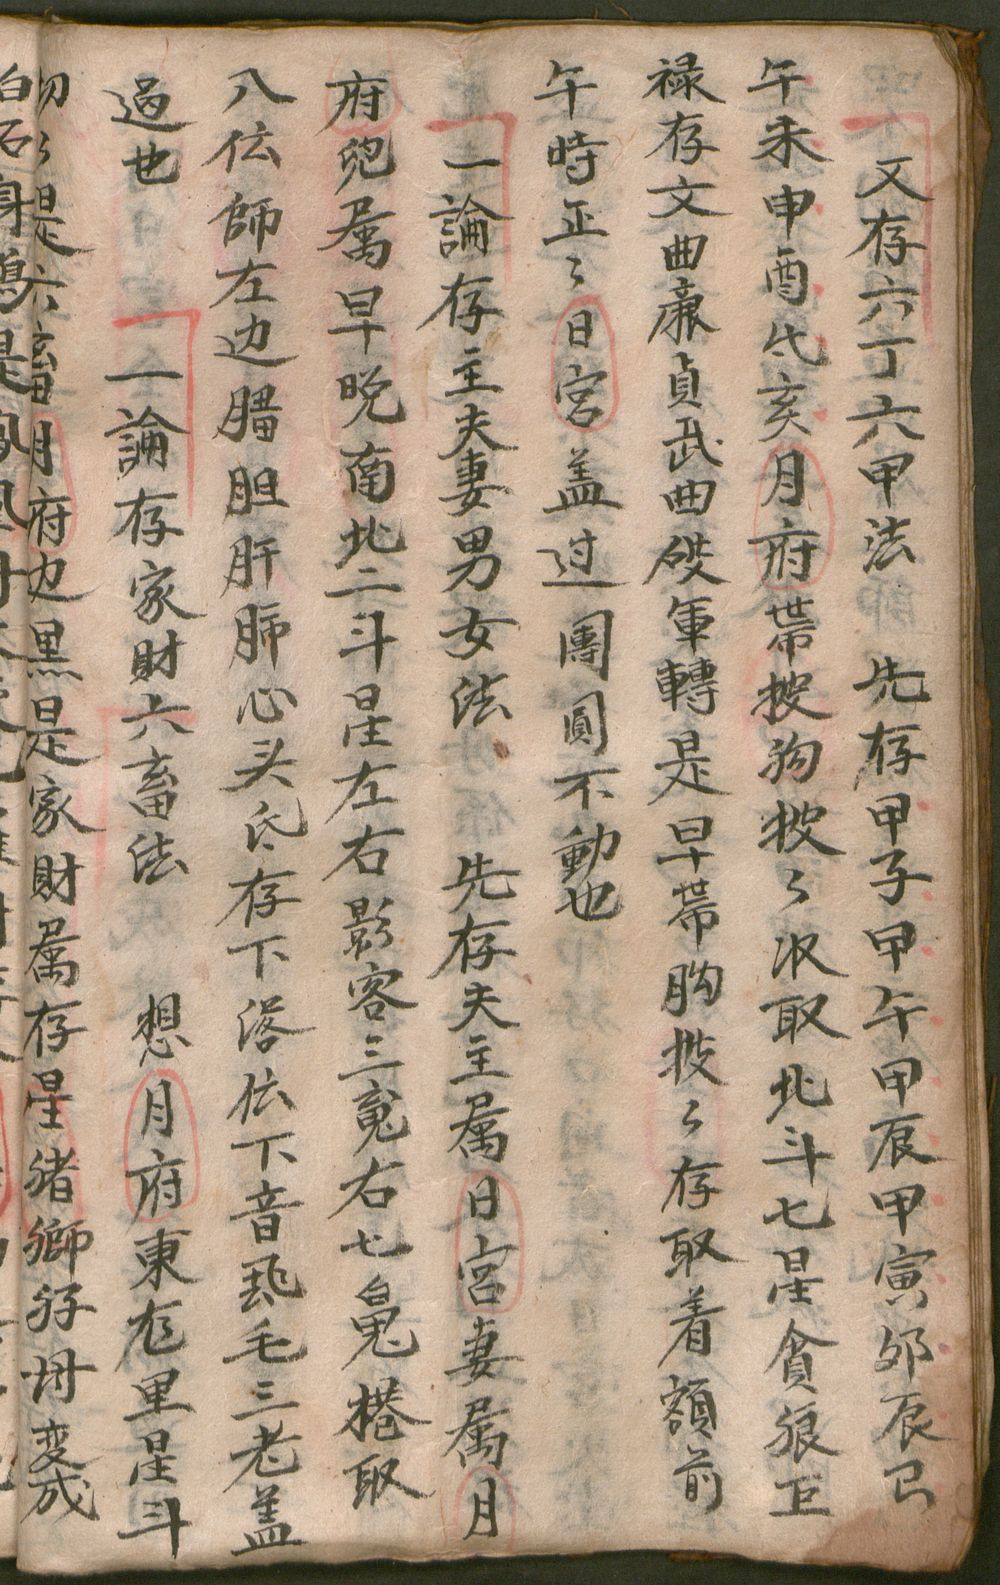 又存六丁六甲法　先存甲子甲午甲辰甲寅夘辰巳
午未申酉戌亥月府帯披狗披〻収取北斗七星貪狼巨
禄存文曲廉貞武曲破軍轉是早帯胸披〻存取着額前
午時正〻日宮盖过團圓不動也
一論存主夫妻男女法　先存夫主属日宮妻属月
府兜属早晚南北二斗星左右影容三魂右七鬼捲取
入伝師左边腸胆肝肺心头底存下落伝下音毛三老盖
過也　一論存家財六畜法　想月府東方里星斗
切〻是六畜月府边黑是家財属存星猪母变成